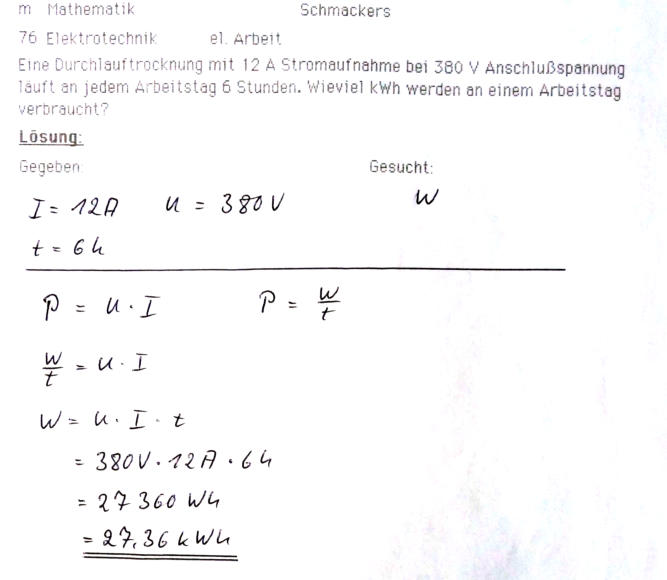 m Mathematik Schmackers
76 Elektrotechnik el. Arbeit
Eine Durchlauftrocknung mit 12 A Stromaufnahme bei 380 V Anschlußspannung
läuft an jedem Arbeitstag 6 Stunden. Wieviel kWh werden an einem Arbeitstag
verbraucht?
Lösung:
Gegeben: Gesucht:
I = 12A U = 380V W
t = 6h
P = U · I P = W/t
W/t = U · I
W = U · I · t
= 380V · 12A · 6h
= 27 360 Wh
= 27,36 kWh